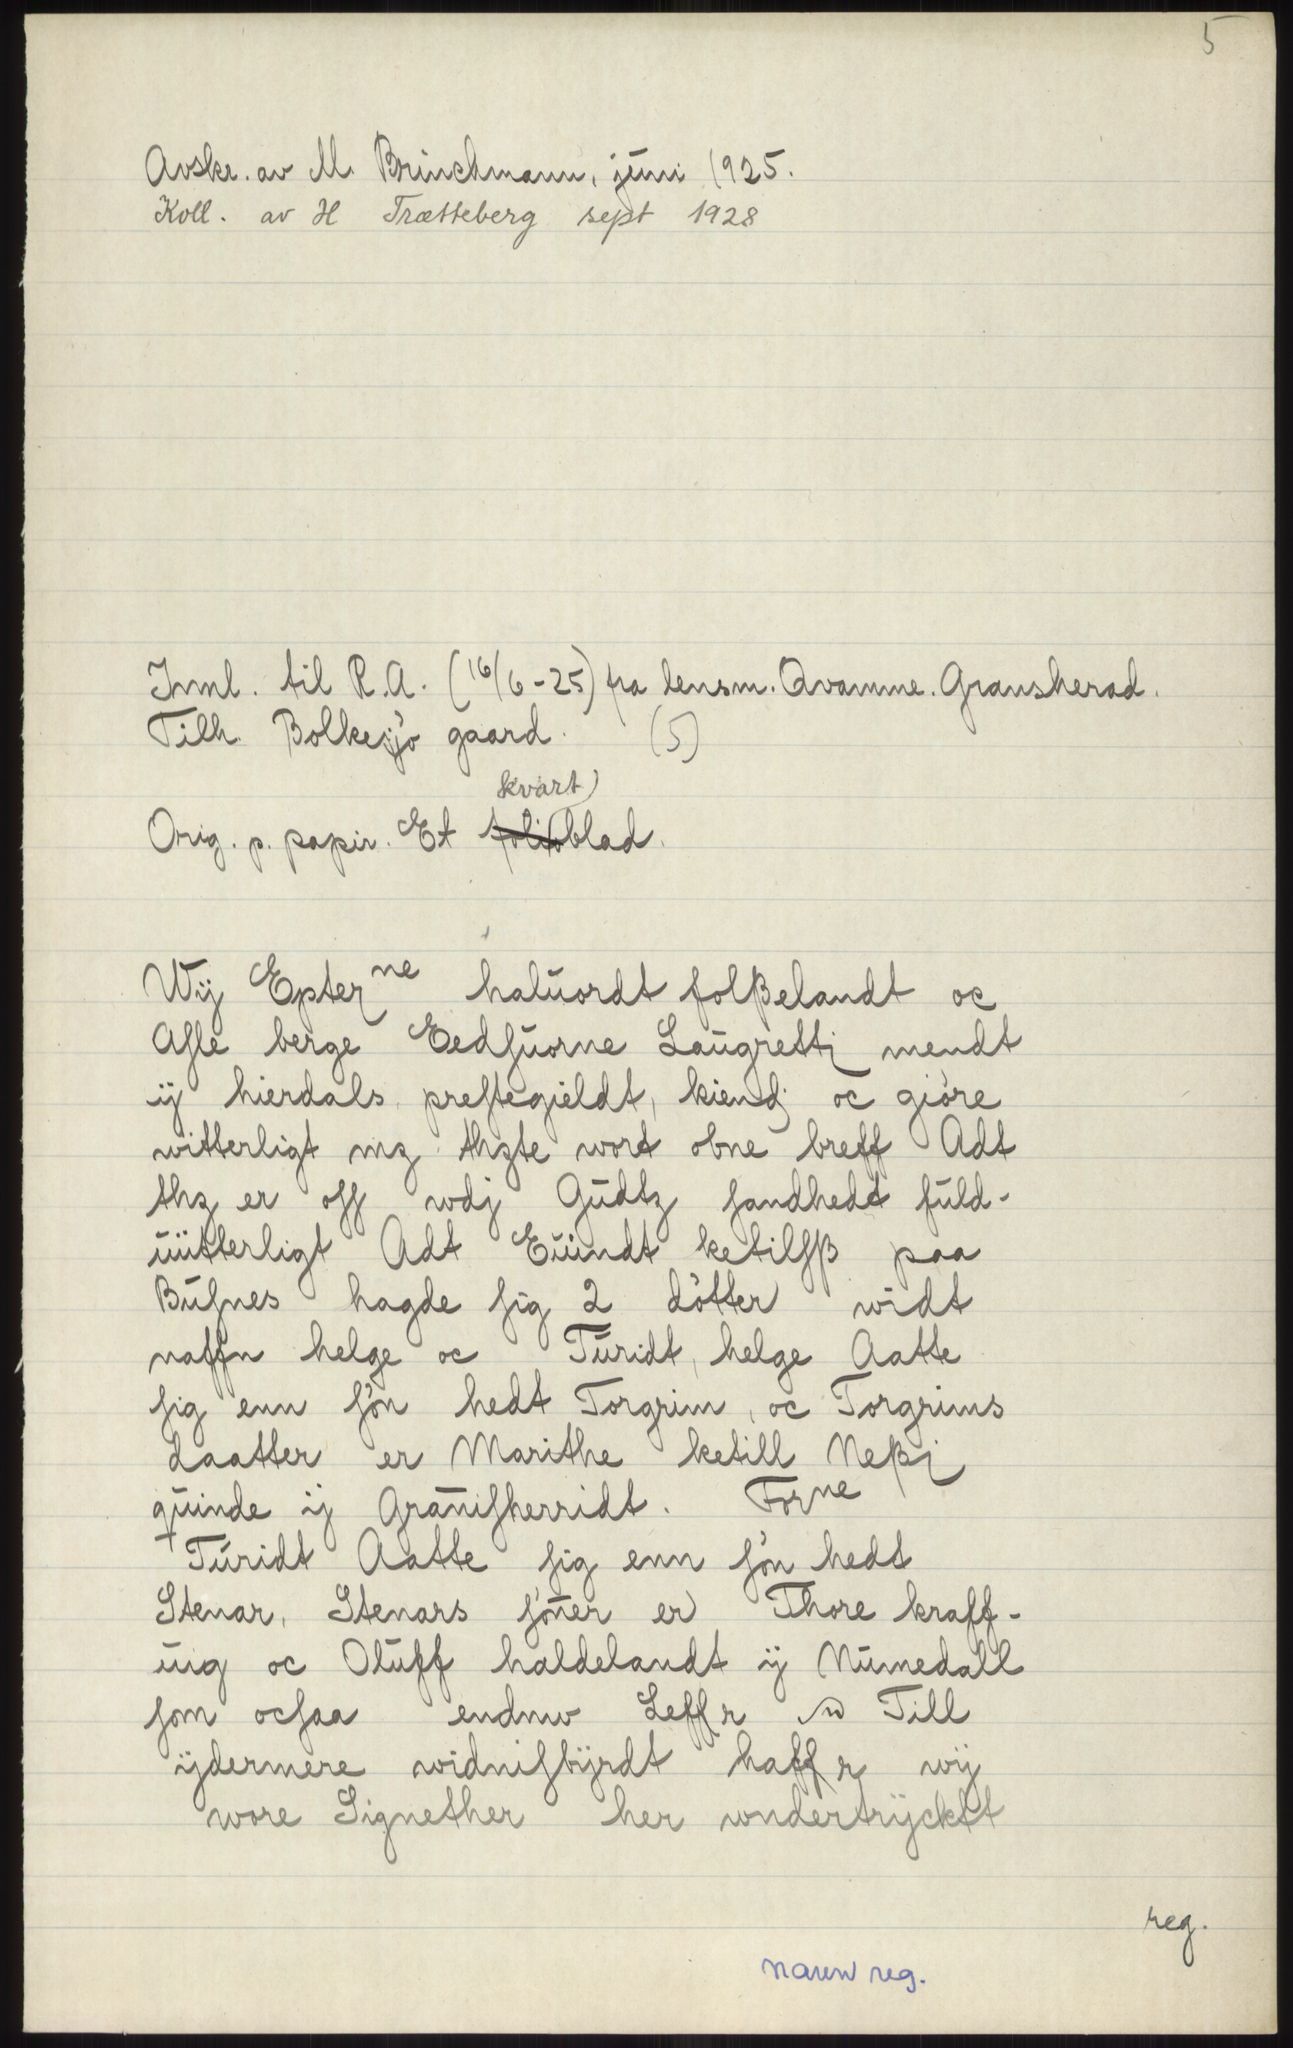 5
Avskr. av M. Brinchmann, juni 1925.
Koll. av H Trætteberg sept 1928
Innl. til R.A. (16/6-25) fra lensm. Qvamme. Gransherad.
Tilh. Bolkesjø gaard. (5)
kvart
Orig. p. papir. Et folioblad.
Wij Epterne haluordt folßelandt oc
Asle berge Eedsuorne Laugrettj mendt
ij hierdals prestegieldt, kiendj oc giøre
witterligt mz thzte wort obne breff Adt
thz er oss wdj Gudtz sandhedt fuld-
uitterligt Adt Euindt ketilsß paa
Busnes hagde sig 2 døtter widt
naffn helge oc Turidt, helge Aatte
sig enn søn hedt Torgrim, oc Torgrims
daatter er Marithe ketill Neßj
quinde ij Granisherridt. Forne
Turidt Aatte sig enn søn hedt
Stenar, Stenars søner er Thore kraff-
uig oc Oluff haldelandt ij Numedall
som ocsaa endnw Leffr Till
ijdermere widnisbyrdt haffr wij
wore Signether her wndertrijcktt
reg.
navnreg.